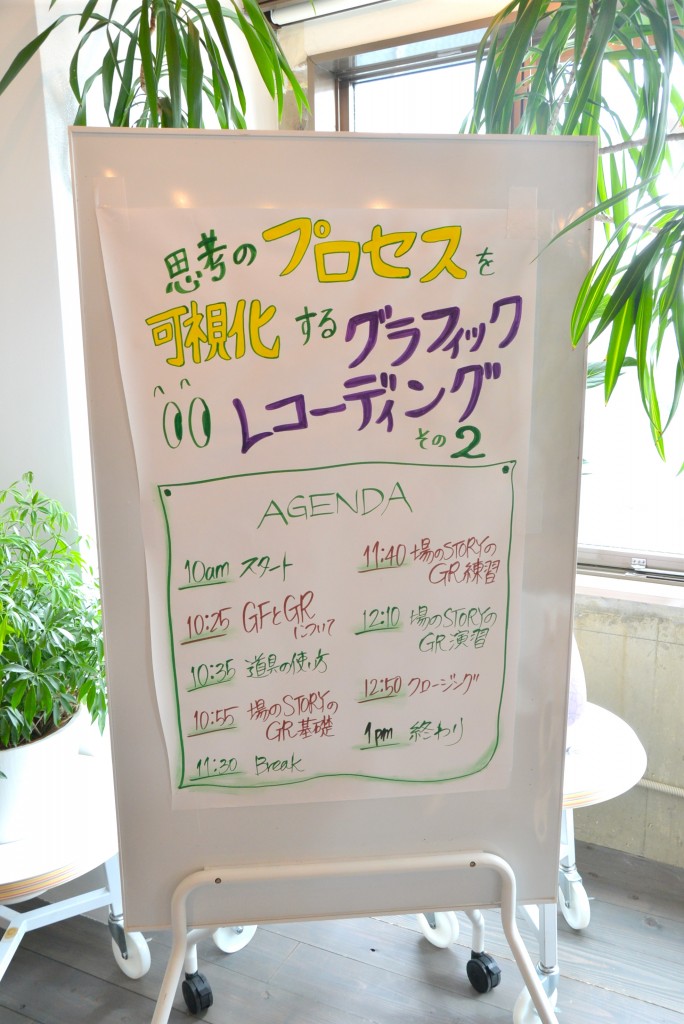 思考のプロセスを
可視化するグラフィック
レコーディング
その2
AGENDA
10am スタート
10:25 GFとGR
について
10:35 道具の使い方
10:55 場のSTORYの
GR基礎
11:30 Break
11:40 場のSTORYの
GR練習
12:10 場のSTORYの
GR演習
12:50 クロージング
1pm 終わり